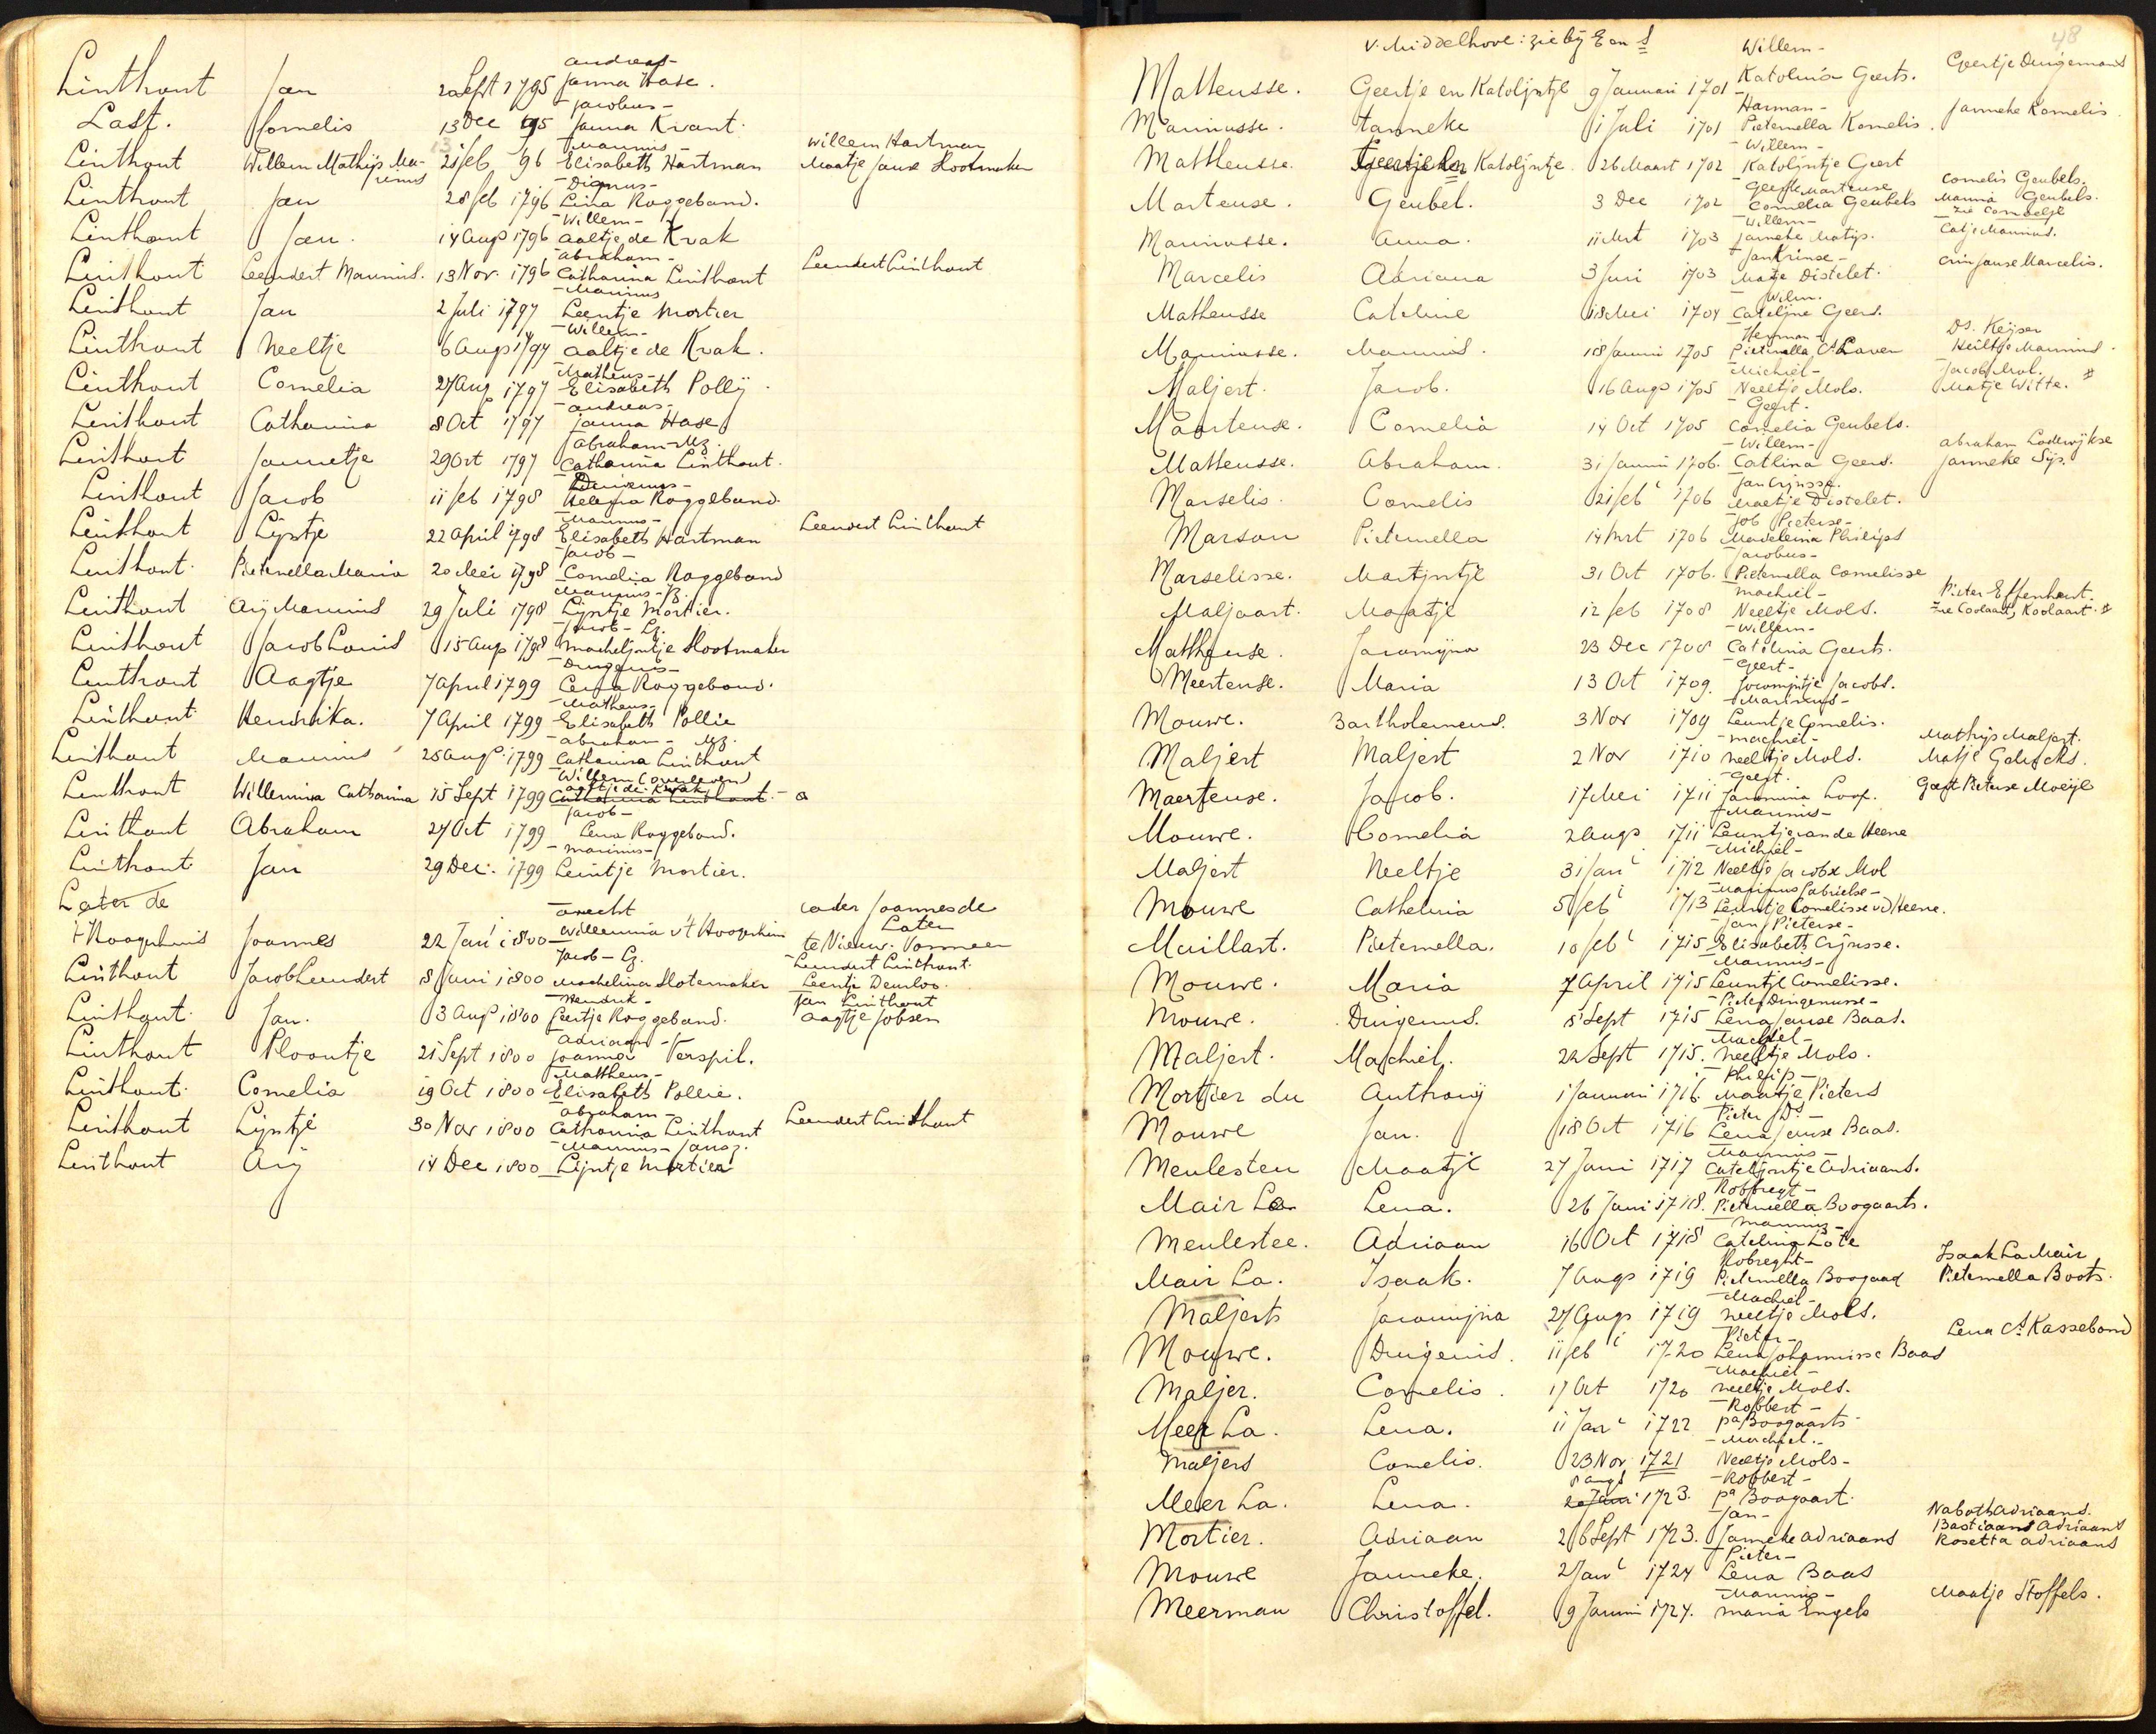 Andreas-
Linthout Jan 20 Sept 1795 Janna Hase.
Jacobus-
Last. Cornelis 13 Dec 95 Janna Kvant.
Marinus- Willem Hartman
Linthout Willem Mathijs Ma- 21 feb 96 Elisabeth Hartman Maatje Janse Slootmaker
rinus
Dignus-
Linthout Jan 28 feb 1796 Lina Roggeband.
Willem-
Linthout Jan. 14 Aug 1796 Aaltje de Kvak
Abraham-
Linthout Leendert Marinus. 13 Nov. 1796 Catharina Linthout Leendert Linthout
Marinus
Linthout Jan 2 Juli 1797 Leentje Mortier
Willem-
Linthout Neeltje 6 Aug 1797 Aaltje de Kvak.
Matheus-
Linthout Cornelia 27 Aug 1797 Elisabeth Pollij
Andreas-
Linthout Catharina 8 Oct 1797 Janna Hase
Abraham-Mz.
Linthout Jannetje 29 Oct 1797 Catharina Linthout.
Linthout Jacob 11 feb 1798 Roggeband
Marinus-
Linthout Lijntje 22 April 1798 Elisabeth Hartman Leendert Linthout
Jacob-
Linthout. Pieternella Maria 20 Mei 1798 Cornelia Roggeband
Marinus-Jz.
Linthout Arij Marinus 29 Juli 1798 Lijntje Mortier.
Jacob-Lz.
Linthout Jacob Louis 15 Aug 1798 Macheljntje Slootmaker
Dingenis-
Linthout Aagtje 7 April 1799 Lena Roggeband.
Matheus-
Linthout Hendrika. 7 April 1799 Elisabeth Pollie
Abraham- Mz.
Linthout Marinus 25 Aug. 1799 Catharina Linthout
Willem (overleven)
Aaltje de Kvak
Linthout Willemina Catharina 15 Sept 1799 Catharina Linthout.
Jacob-
Linthout Abraham 27 Oct 1799 Lena Roggeband.
Marinus-
Linthout Jan 29 Dec. 1799 Leintje Mortier.
Later de
onecht vader Joannes de
't Hoogerhuis Joannes 22 Jan 1800 Willemina v't Hoogerhuis Later
te Nieuw. Vormeer
Jacob-Lz. Leendert Linthout.
Linthout Jacob Leendert 8 Juni 1800 Machelina Slotemaker Leentje Deurloo.
Hendrik- Jan Linthout
Linthout. Jan. 3 Aug 1800 Geertje Roggeband. Aagtje Jobsen
Adriaan-
Linthout Ploontje 21 Sept 1800 Joanna Verspil.
Mattheus-
Linthout. Cornelia 19 Oct 1800 Elisabeth Pollie.
Abraham-
Linthout Lijntje 30 Nov 1800 Catharina Linthout Leendert Linthout
Marinus-Jansz.
Linthout Arij 14 Dec 1800 Lijntje Mortier
48
v. Middelhove: zie bij E en S
Willem- Geertje Dingemans
Matteusse. Geertje en Katoljntje 9 Januari 1701 Katolina Geerts.
Harman- Janneke Kornelis
Marinusse. Tanneke 1 Juli 1701 Pieternella Kornelis.
Willem-
Mattheusse. Geertje en Katoljntje 26 Maart 1702 Katoljntje Geert
Geert Marteuse Cornelis Geubels.
Marteuse. Geubel. 3 Dec 1702 Cornelia Geubels Marina Geubels.
Willem- zie Cornelje
Marinusse. Anna. 11 Mrt 1703 Janneke Matijs. Catje Marinus.
Jan Krinse-
Marcelis Adriana 3 Juni 1703 Matje Distelet. Crin Janse Marcelis.
Wilm.
Matheusse Cateline 18 Mei 1704 Cateljne Geers.
Herman- Ds. Keijser
Marinusse. Marinus. 18 Januari 1705 Pieternella Cs Laven Neeltje Marinus.
Michiel- Jacob Mol.
Maljert. Jacob. 16 Aug 1705 Neeltje Mols. Matje Witte. #
Geert.
Maarteuse. Cornelia 14 Oct 1705 Cornelia Geubels.
Willem- Abraham Lodewijkse
Matteusse. Abraham. 31 Januari 1706. Catlina Geers. Janneke Sijs.
Jan Crijnsse.
Marselis. Cornelis 21 feb 1706 Maetje Distelet.
Job Pieterse-
Marson Pieternella 14 Mrt 1706 Madeleina Philips
Jacobus-
Marselisse. Martjntje 31 Oct 1706. Pieternella Cornelisse
Machiel- Pieter Effenhart.
Maljaart. Maatje 12 feb 1708 Neeltje Mols. zie Coolaart, Koolaart. #
Willem-
Matheuse. Jacomijna 23 Dec 1708 Catelina Geerts.
Geert-
Meerteuse. Maria 13 Oct 1709. Jocomijntje Jacobs.
Marinus-
Mouwe. Bartholomeus. 3 Nov 1709 Leuntje Cornelis.
Machiel- Mathijs Maljert.
Maljert Maljert 2 Nov 1710 Neeltje Mols. Matje
Geert.
Maerteuse. Jacob. 17 Mei 1711 Jacomina Loof. Geert Pieterse Moeije
Marinus-
Mouwe. Cornelia 2 Aug 1711 Leuntje van de Heene
Michiel-
Maljert Neeltje 31 Jan 1712 Neeltje Jacobse Mol
Marinus Gabrielse-
Mouwe Cathelina 5 feb 1713 Leuntje Cornelisse v/d Heene.
Jan Pieterse-
Maillart. Pieternella. 10 feb 1715 Elisabeth Crijnsse.
Marinus-
Mouwe. Maria 7 April 1715 Leuntje Cornelisse.
Pieter Dingenusse-
Mouwe. Dingenus. 8 Sept 1715 Lena Janse Baas.
Machiel-
Maljert. Machiel. 22 Sept 1715. Neeltje Mols.
Philip-
Mortier du Anthonij 1 Januari 1716. Maatje Pieters
Pieter Ds.-
Mouwe Jan. 18 Oct 1716 Lena Janse Baas.
Marinus-
Meulesteu Maatje 27 Juni 1717 Cateljntje Adriaans.
Robbregt-
Mair La Lena. 26 Juni 1718. Pieternella Boogaarts.
Marinus-
Meulestee. Adriaan 16 Oct 1718 Catelina Lote
Robreght- Isaak La Mair
Mair La. Isaak. 7 Aug 1719 Pieternella Boogaad Pieternella Boots.
Machiel-
Maljerts Jacomijna 27 Aug 1719 Neeltje Mols.
Pieter- Lena Cs. Kasseband
Mouwe. Dingenis. 11 feb 1720 Lena Johannisse Baas
Machiel-
Maljer. Cornelis. 17 Oct 1720 Neeltje Mols.
Robbert-
Meer La. Lena. 11 Jan 1722 Pa Boogaarts
Machiel.-
Maljers Cornelis. 23 Nov 1721 Neeltje Mols-
8 Aug Robbert-
Meer La. Lena. 20 Juni 1723. Pa Boogaart.
Jan- Naboth Adriaans.
Mortier. Adriaan 26 Sept 1723. Janneke Adriaans Bastiaans Adriaans
Rosetta Adriaans
Pieter-
Mouwe Janneke. 2 Jan 1724 Lena Baas
Marinis- Maatje Stoffels.
Meerman Christoffel. 9 Januari 1724. Maria Engels